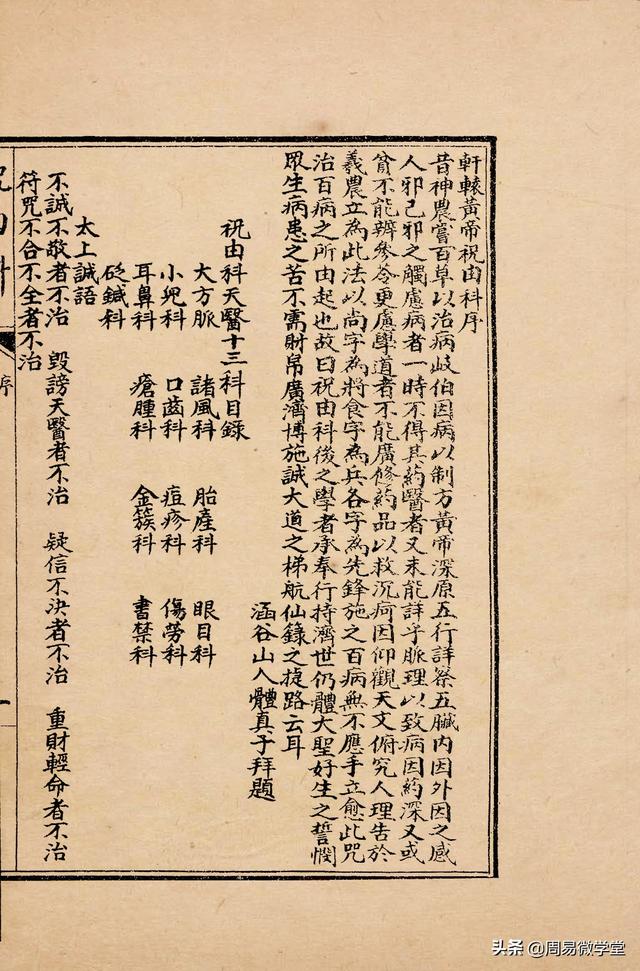 軒轅黃帝祝由科序
昔神農嘗百草以治病岐伯因病以制方黃帝深原五行詳察五臟內因外因之感
人邪己邪之觸慮病者一時不得其葯醫者又未能詳字脈理以致病因葯深又或
貧不能辨參苓更慮學道者不能廣修葯品以救沉疴因仰觀天文俯究人理告於
羲農立為此法以尚字為將食字為兵各字為先鋒施之百病無不應手立愈此咒
治百病之所由起也故曰祝由科後之學者承奉行持濟世仍體大聖好生之誓憫
眾生病患之苦不需財帛廣濟博施誠大道之梯航仙錄之捷路云耳
涵谷山人體真子拜題
祝由科天醫十三科目錄
大方脈 諸風科 胎產科 眼目科
小兒科 口齒科 痘疹科 傷勞科
耳鼻科 瘡腫科 金簇科 書禁科
砭鍼科
太上誠語
不誠不敬者不治 毀謗天醫者不治 疑信不決者不治 重財輕命者不治
符咒不合不全者不治
序
头条 @周易微学堂